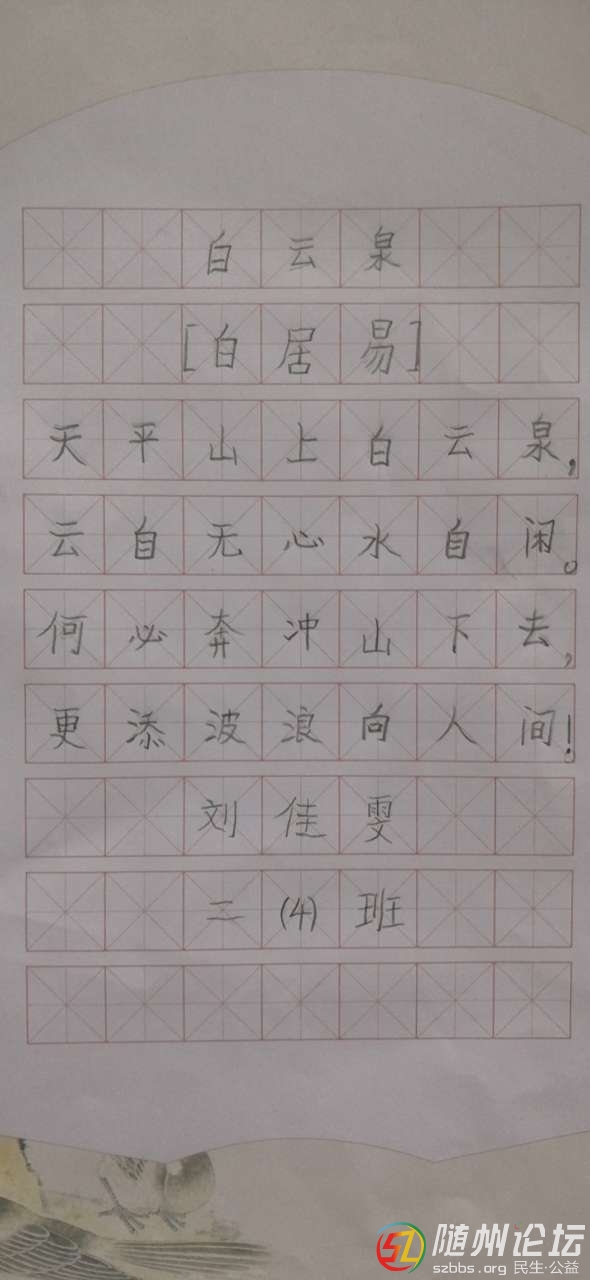 白云泉
[白居易]
天平山上白云泉,
云自无心水自闲。
何必奔冲山下去,
更添波浪向人间!
刘佳雯
二(4)班
随州论坛
szbbs.org 民生·公益